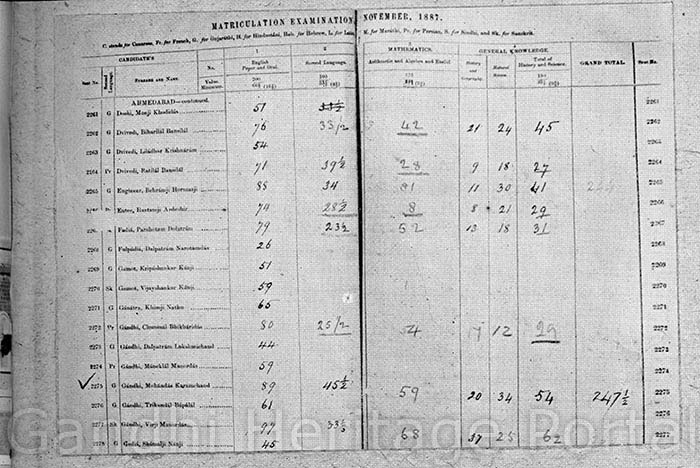 MATRICULATION EXAMINATION, NOVEMBER, 1887.
C. stands for Canarese, Fr. for French, G. for Gujaráthi, H. for Hindustáni, Heb. for Hebrew, L. for Latin, M. for Maráthi, Pr. for Persian, S. for Sindhi, and Sk. for Sanskrit.
CANDIDATE'S 1 2 3 4 5
MATHEMATICS. GENERAL KNOWLEDGE.
Seat No. Second Language. SURNAME AND NAME. No. English Paper and Oral. Second Language. Arithmetic and Algebra and Euclid History and Geography. Natural Science. Total of History and Science. GRAND TOTAL Seat No.
Value. Minimum. 200 100
AHMEDABAD—continued.
2261 G Doshi, Monji Khodidás 57 33½ 2261
2262 G Dvivedi, Bihárilál Bansilál 76 33½ 42 21 24 45 2262
2263 G Dvivedi, Liládhar Krishnárám 54 2263
2264 Pr Dvivedi, Ratilál Bansilál 71 39½ 28 9 18 27 2264
2265 G Engineer, Behrámji Hormasji 88 34 81 11 30 41 2265
Entee, Rastamji Ardeshir 74 28½ 8 8 21 29 2266
Fadiá, Parshotam Dolatrám 79 23½ 52 13 18 31 2267
2268 G Fulpádiá, Dalpatrám Narotamdás 26 2268
2269 G Gamot, Kripáshankar Kánji 51 2269
2270 Sk Gamot, Vijayshankar Kánji 59 2270
2271 G Gánátra, Khimji Nathu 65 2271
2272 Pr Gándhi, Chunilál Bhikháridás 80 25½ 54 17 12 29 2272
2273 G Gándhi, Dalpatrám Lakshmichand 44 2273
2274 Pr Gándhi, Mánéklál Manordás 59 2274
2275 G Gándhi, Mohndás Karamchand 89 45½ 59 20 34 54 247½ 2275
2276 G Gándhi, Tribhovan Bápálál 61 2276
2277 Sk Gándhi, Virji Manordás 99 33½ 68 37 25 62 2277
2278 G Gándhi, Shámalji Nánji 45
Gandhi Heritage Portal